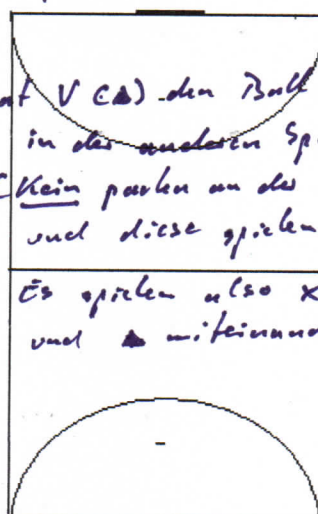 at V (▲) den Ball
in der anderen Sp
(Kein parken an der
und diese spielen
Es spielen also x
und ▲ miteinand